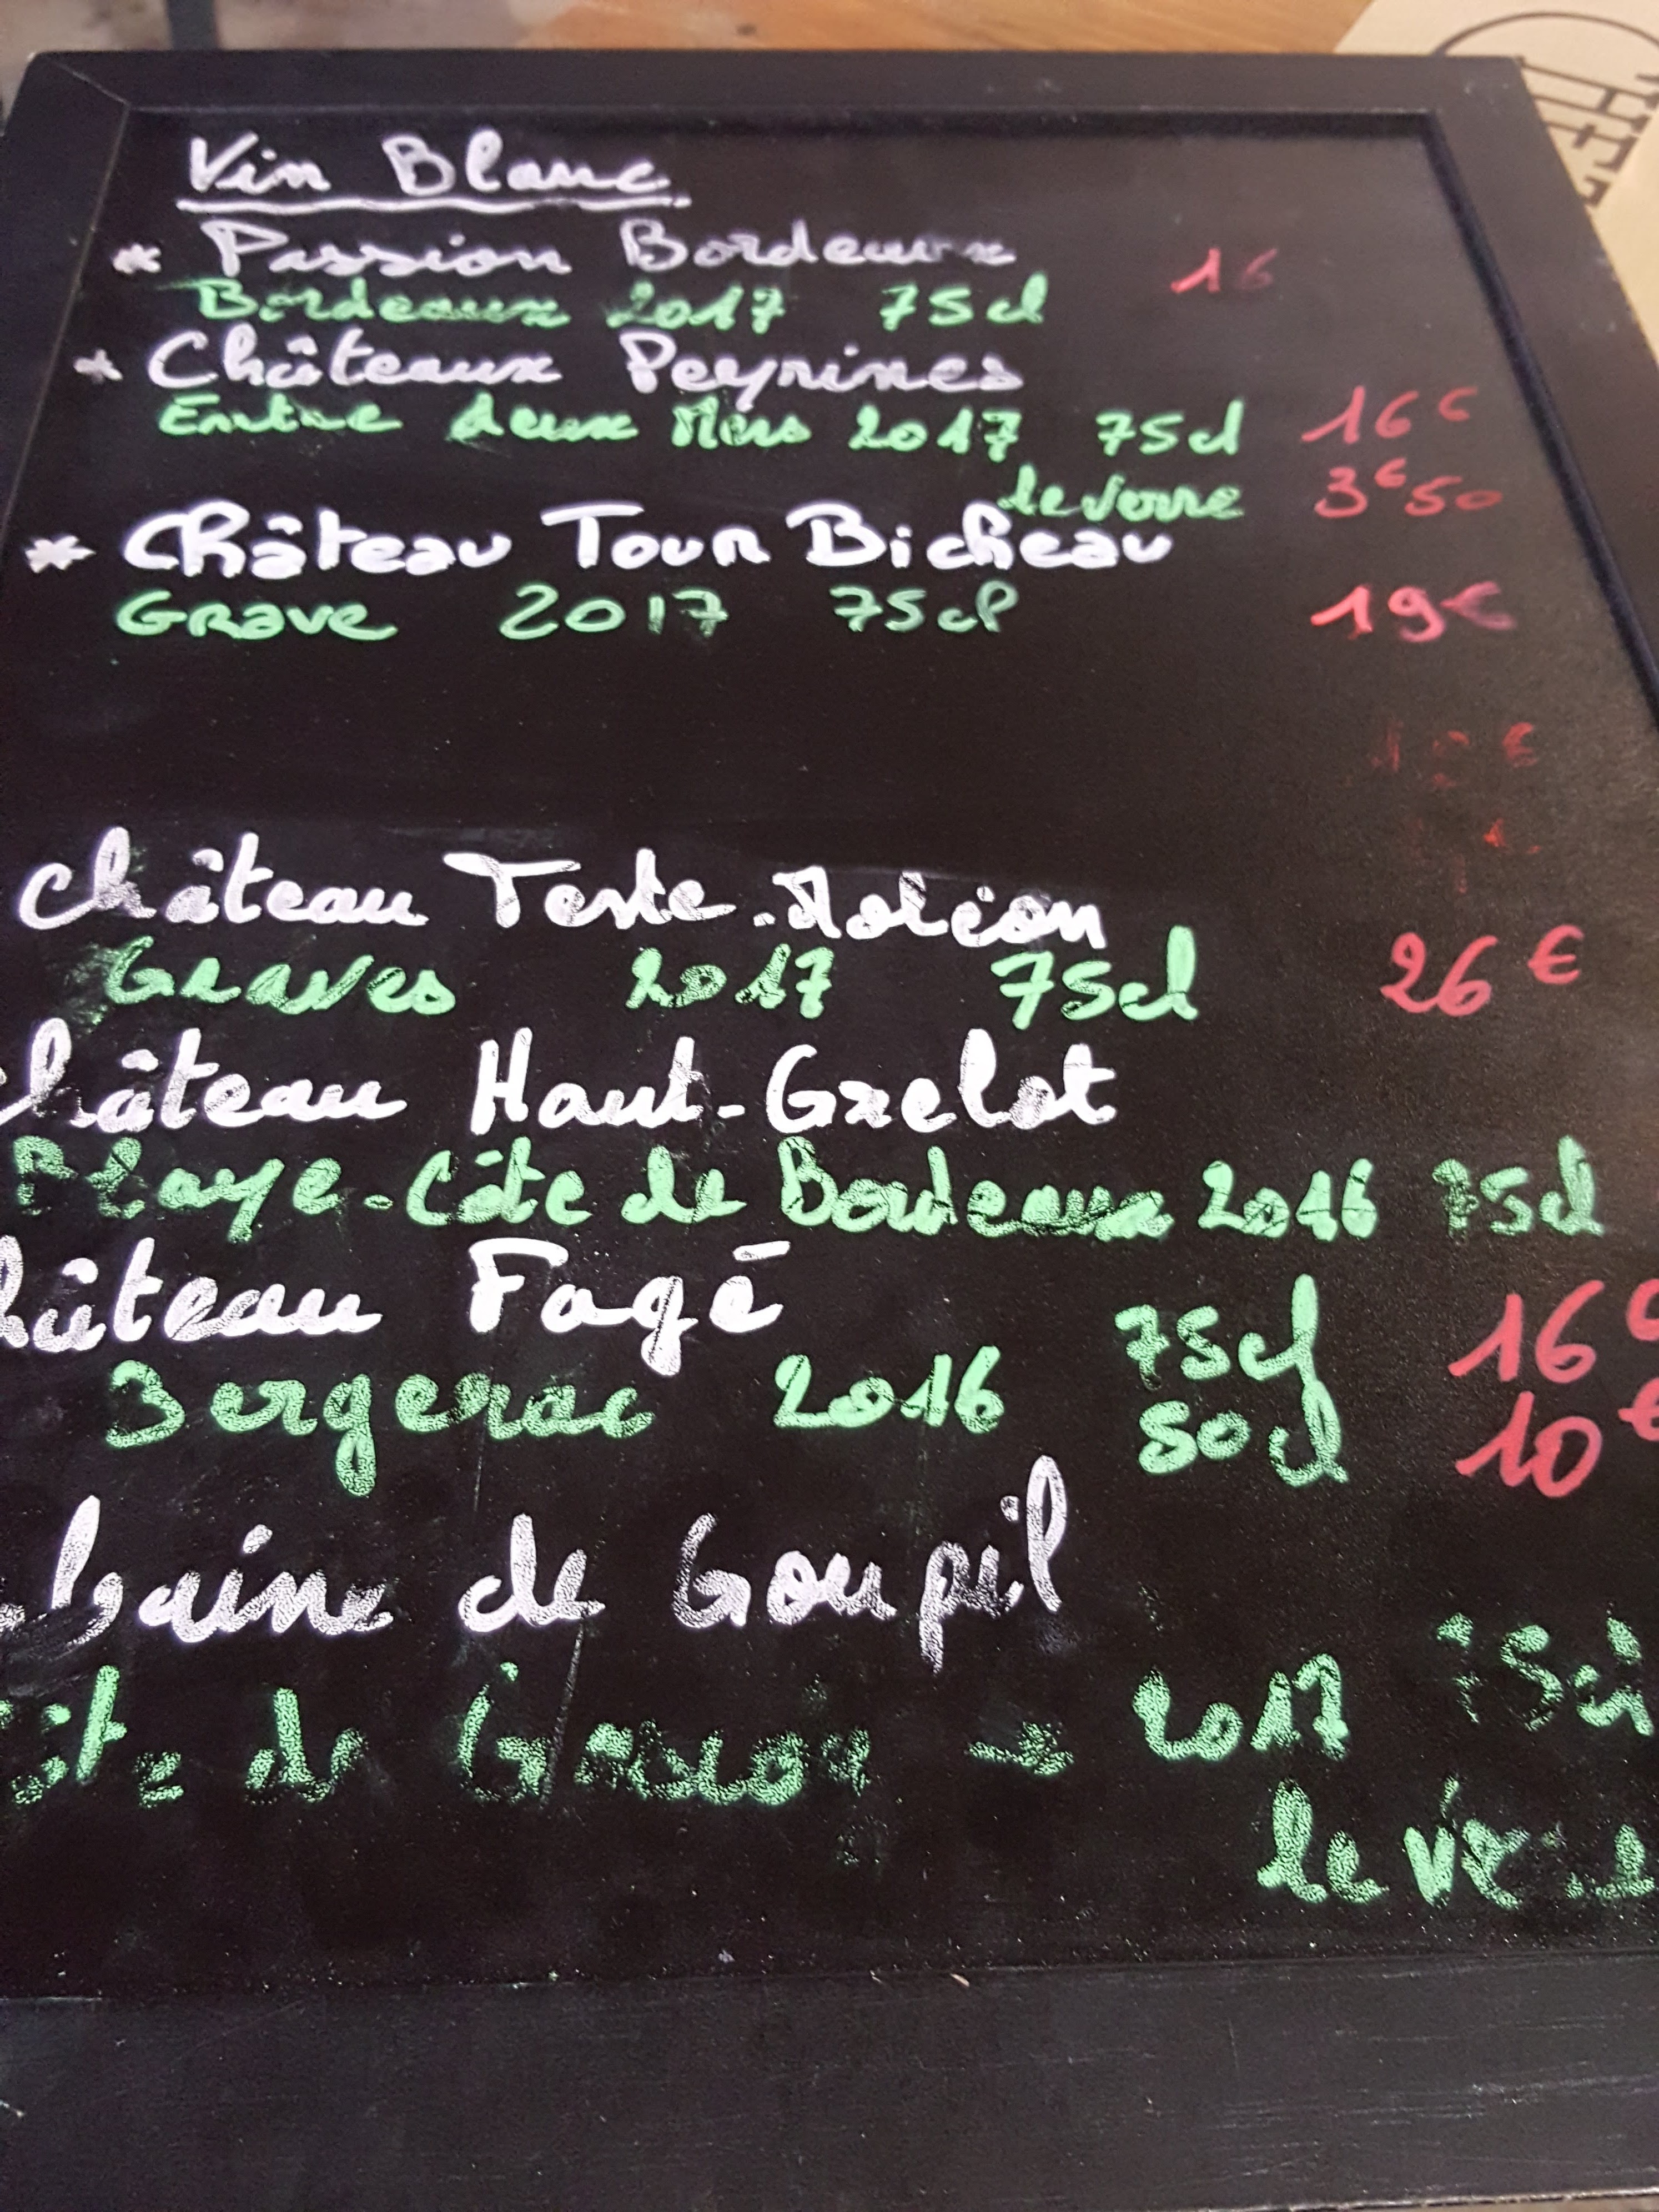 Vin Blanc
* Passion Bordeaux
Bordeaux 2017 75cl 16
* Châteaux Peyrines
Entre deux Mers 2017 75cl 16€
le verre 3€50
* Château Tour Bicheau
Grave 2017 75cl 19€
Château Teste-
Graves 2017 75cl 26€
Château Haut-Grelot
Blaye-Côte de Bordeaux 2016 75cl
hâteau Fagé 75cl 16€
Bergerac 2016 50cl 10€
baine de Goupil
ôte de Gascon → 2017 75cl
le verre